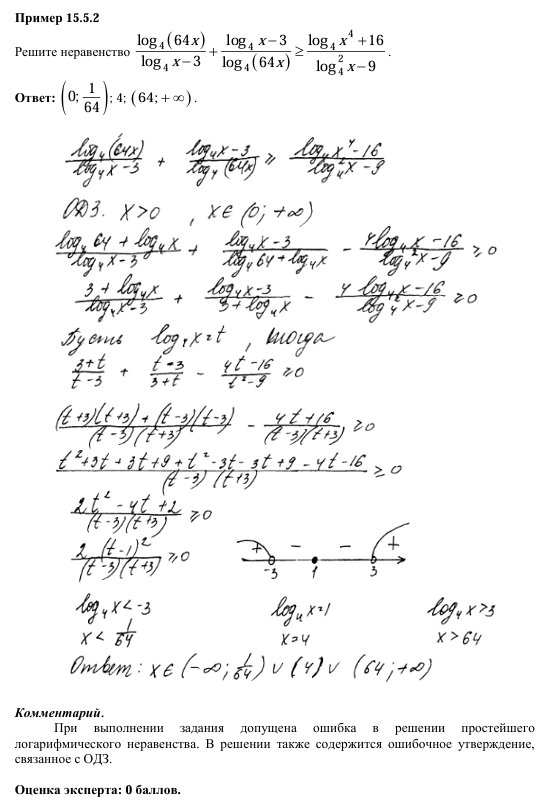 Пример 15.5.2
Решите неравенство log₄(64x)/(log₄x−3) + (log₄x−3)/log₄(64x) ≥ (log₄x⁴+16)/(log₄²x−9) .
Ответ: (0; 1/64); 4; (64;+∞).
log₄(64x)/(log₄x−3) + (log₄x−3)/log₄(64x) ≥ (log₄x⁴−16)/(log₄²x−9)
ОДЗ. x>0 , x∈(0;+∞)
(log₄64+log₄x)/(log₄x−3) + (log₄x−3)/(log₄64+log₄x) − (4log₄x−16)/(log₄²x−9) ≥0
(3+log₄x)/(log₄x−3) + (log₄x−3)/(3+log₄x) − (4log₄x−16)/(log₄²x−9) ≥0
Пусть log₄x=t , тогда
(3+t)/(t−3) + (t−3)/(3+t) − (4t−16)/(t²−9) ≥0
((t+3)(t+3)+(t−3)(t−3))/((t−3)(t+3)) − (4t+16)/((t−3)(t+3)) ≥0
(t²+3t+3t+9+t²−3t−3t+9−4t−16)/((t−3)(t+3)) ≥0
(2t²−4t+2)/((t−3)(t+3)) ≥0
2(t−1)²/((t−3)(t+3)) ≥0 + − − +
−3 1 3
log₄x<−3 log₄x=1 log₄x>3
x<1/64 x=4 x>64
Ответ: x∈(−∞;1/64)∪(4)∪(64;+∞)
Комментарий.
При выполнении задания допущена ошибка в решении простейшего
логарифмического неравенства. В решении также содержится ошибочное утверждение,
связанное с ОДЗ.
Оценка эксперта: 0 баллов.